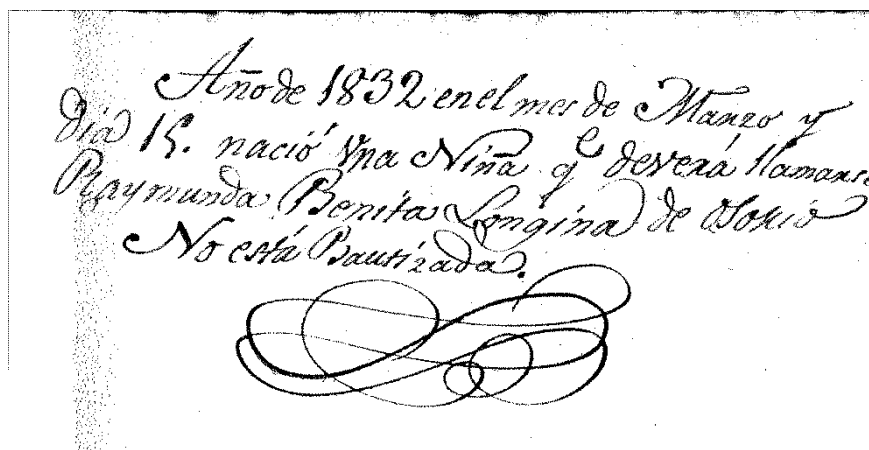 Año de 1832 en el mes de Marzo y
Dia 15. nació Vna Niña q̃ deverá llamarse
Raymunda Benita Longina de Osorio
No está Bautizada.